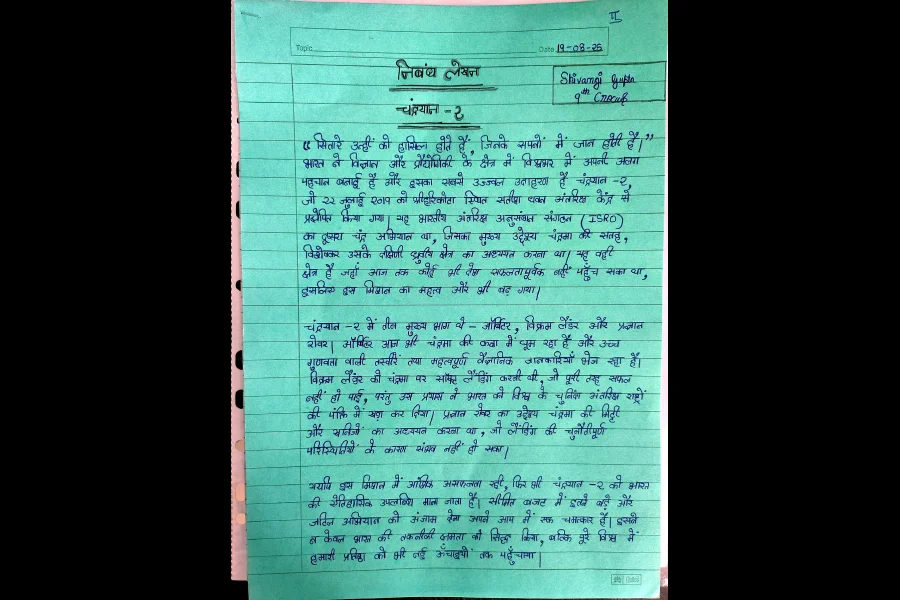 II
Topic
Date 19-08-25
निबंध लेखन
Shivangi Gupta
9th
चंद्रयान -२
“सितारे उन्हीं को हासिल होते हैं, जिनके सपनों में जान होती है।”
भारत ने विज्ञान और प्रौद्योगिकी के क्षेत्र में विश्वभर में अपनी अलग
पहचान बनाई है और इसका सबसे उज्ज्वल उदाहरण है चंद्रयान -२,
जो २२ जुलाई २०१९ को श्रीहरिकोटा स्थित सतीश धवन अंतरिक्ष केंद्र से
प्रक्षेपित किया गया। यह भारतीय अंतरिक्ष अनुसंधान संगठन (ISRO)
का दूसरा चंद्र अभियान था, जिसका मुख्य उद्देश्य चंद्रमा की सतह,
विशेषकर उसके दक्षिणी ध्रुवीय क्षेत्र का अध्ययन करना था। यह वही
क्षेत्र है जहाँ आज तक कोई भी देश सफलतापूर्वक नहीं पहुँच सका था,
इसलिए इस मिशन का महत्व और भी बढ़ गया।
चंद्रयान -२ में तीन मुख्य भाग थे - ऑर्बिटर, विक्रम लैंडर और प्रज्ञान
रोवर। ऑर्बिटर आज भी चंद्रमा की कक्षा में घूम रहा है और उच्च
गुणवत्ता वाली तस्वीरें तथा महत्वपूर्ण वैज्ञानिक जानकारियाँ भेज रहा है।
विक्रम लैंडर को चंद्रमा पर सॉफ्ट लैंडिंग करनी थी, जो पूरी तरह सफल
नहीं हो पाई, परंतु उस प्रयास ने भारत को विश्व के चुनिंदा अंतरिक्ष राष्ट्रों
की पंक्ति में खड़ा कर दिया। प्रज्ञान रोवर का उद्देश्य चंद्रमा की मिट्टी
और खनिजों का अध्ययन करना था, जो लैंडिंग की चुनौतीपूर्ण
परिस्थितियों के कारण संभव नहीं हो सका।
यद्यपि इस मिशन में आंशिक असफलता रही, फिर भी चंद्रयान -२ को भारत
की ऐतिहासिक उपलब्धि माना जाता है। सीमित बजट में इतने बड़े और
जटिल अभियान को अंजाम देना अपने आप में एक चमत्कार है। इसने
न केवल भारत की तकनीकी क्षमता को सिद्ध किया, बल्कि पूरे विश्व में
हमारी प्रतिष्ठा को भी नई ऊँचाइयों तक पहुँचाया।